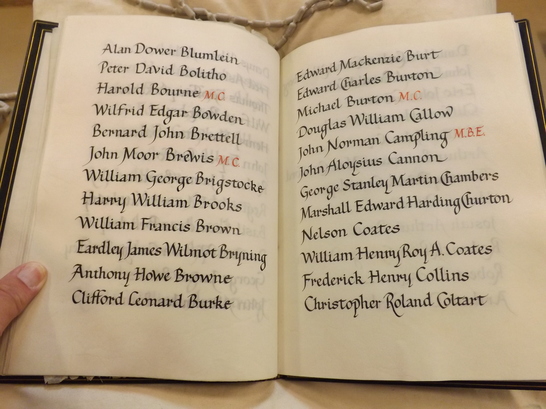 Alan Dower Blumlein
Peter David Bolitho
Harold Bourne M.C.
Wilfrid Edgar Bowden
Bernard John Brettell
John Moor Brewis M.C.
William George Brigstocke
Harry William Brooks
William Francis Brown
Eardley James Wilmot Bryning
Anthony Howe Browne
Clifford Leonard Burke
Edward Mackenzie Burt
Edward Charles Burton
Michael Burton M.C.
Douglas William Callow
John Norman Campling M.B.E.
John Aloysius Cannon
George Stanley Martin Chambers
Marshall Edward Harding Churton
Nelson Coates
William Henry Roy A. Coates
Frederick Henry Collins
Christopher Roland Coltart